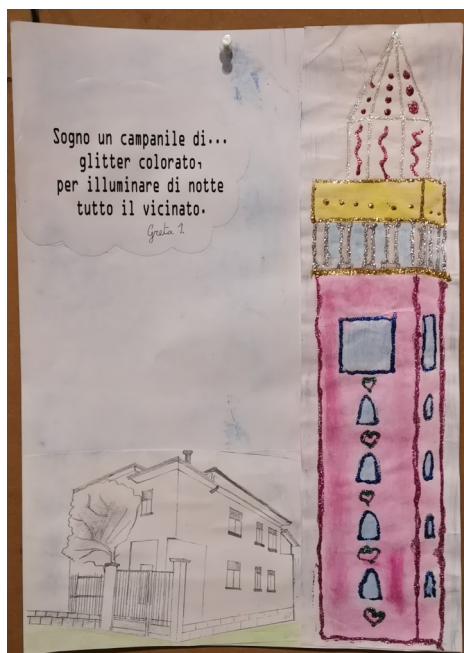 Sogno un campanile di...
glitter colorato,
per illuminare di notte
tutto il vicinato.
Greta 1